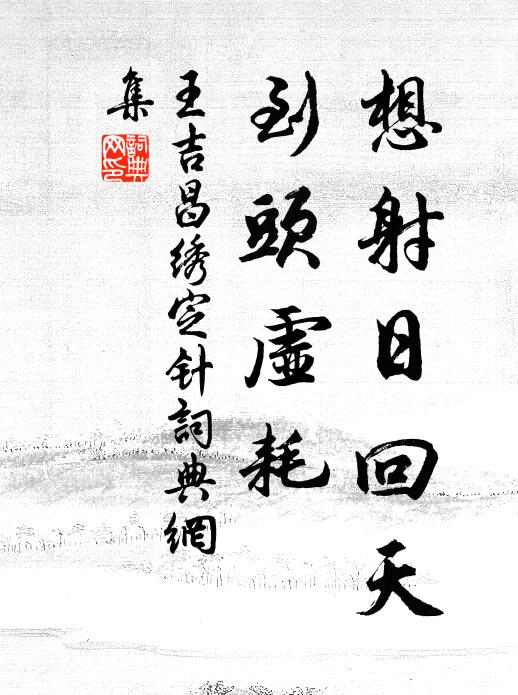 想射日回天
到頭虛耗
王吉昌绣定针詞典網
集
詞典
网印